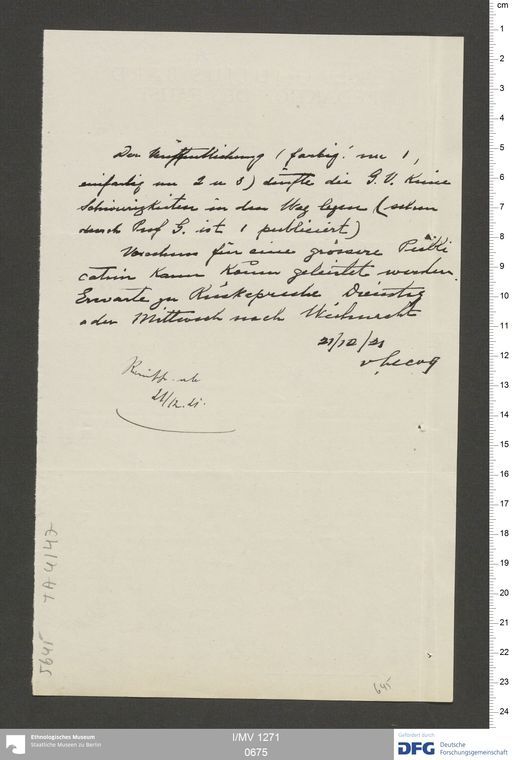 Der Veröffentlichung (farbig: nur 1,
einfarbig nur 2 u 3) dürfte die G.V. keine
Schwierigkeiten in den Weg legen (schon
durch Prof G. ist 1 publiciert)
Vorschuss für eine grössere Publi
cation kann kaum geleistet werden.
Erwarte zu Rücksprache Dienstag
oder Mittwoch nach Weihnacht
21/12/21
v Lecoq
21/12. 21.
5645
IA 4147
645
cm
1
2
3
4
5
6
7
8
9
10
11
12
13
14
15
16
17
18
19
20
21
22
23
24
Ethnologisches Museum
Staatliche Museen zu Berlin
I/MV 1271
0675
Gefördert durch
DFG Deutsche
Forschungsgemeinschaft